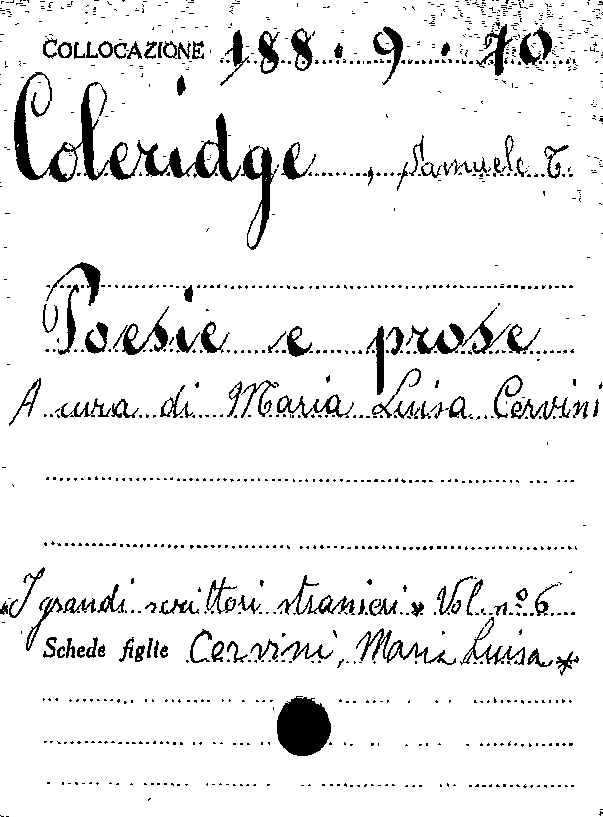 COLLOCAZIONE 188.9.70
Coleridge, Samuele T.
Poesie e prose
A cura di Maria Luisa Cervini
"I grandi scrittori stranieri" Vol. nº 6
Schede figlie Cervini, Maria Luisa *